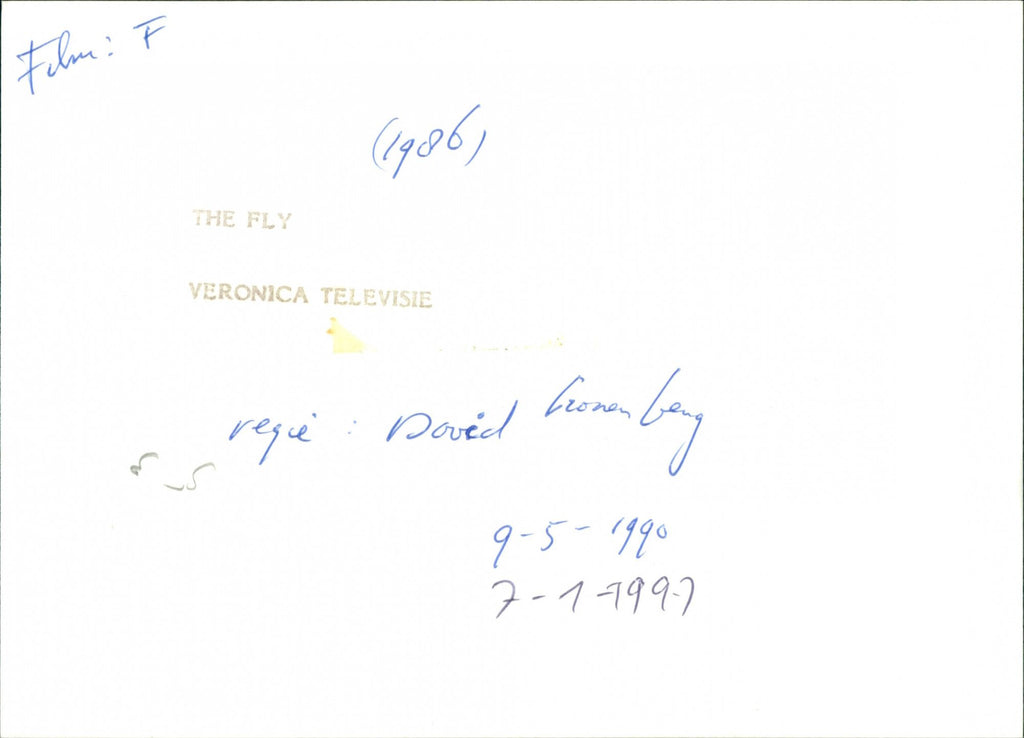 Film: F
(1986)
THE FLY
VERONICA TELEVISIE
regie : David Cronenberg
9-5-1990
7-1-1997